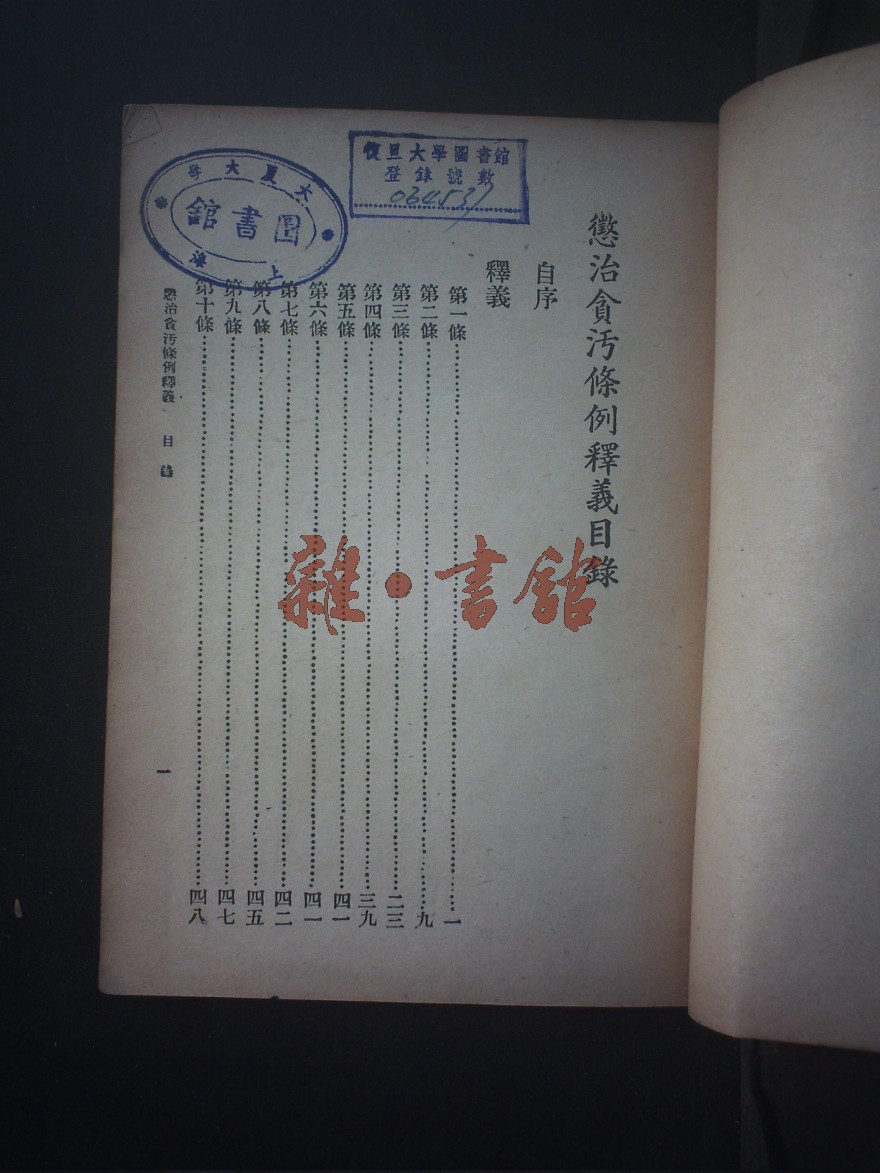 懲治貪污條例釋義目錄
自序
釋義
第一條……一
第二條……九
第三條……二三
第四條……三九
第五條……四一
第六條……四一
第七條……四二
第八條……四五
第九條……四七
第十條……四八
懲治貪污條例釋義 目錄
一
復旦大學圖書館
登錄號數
064537
大夏大學
圖書館
上海
雜·書館